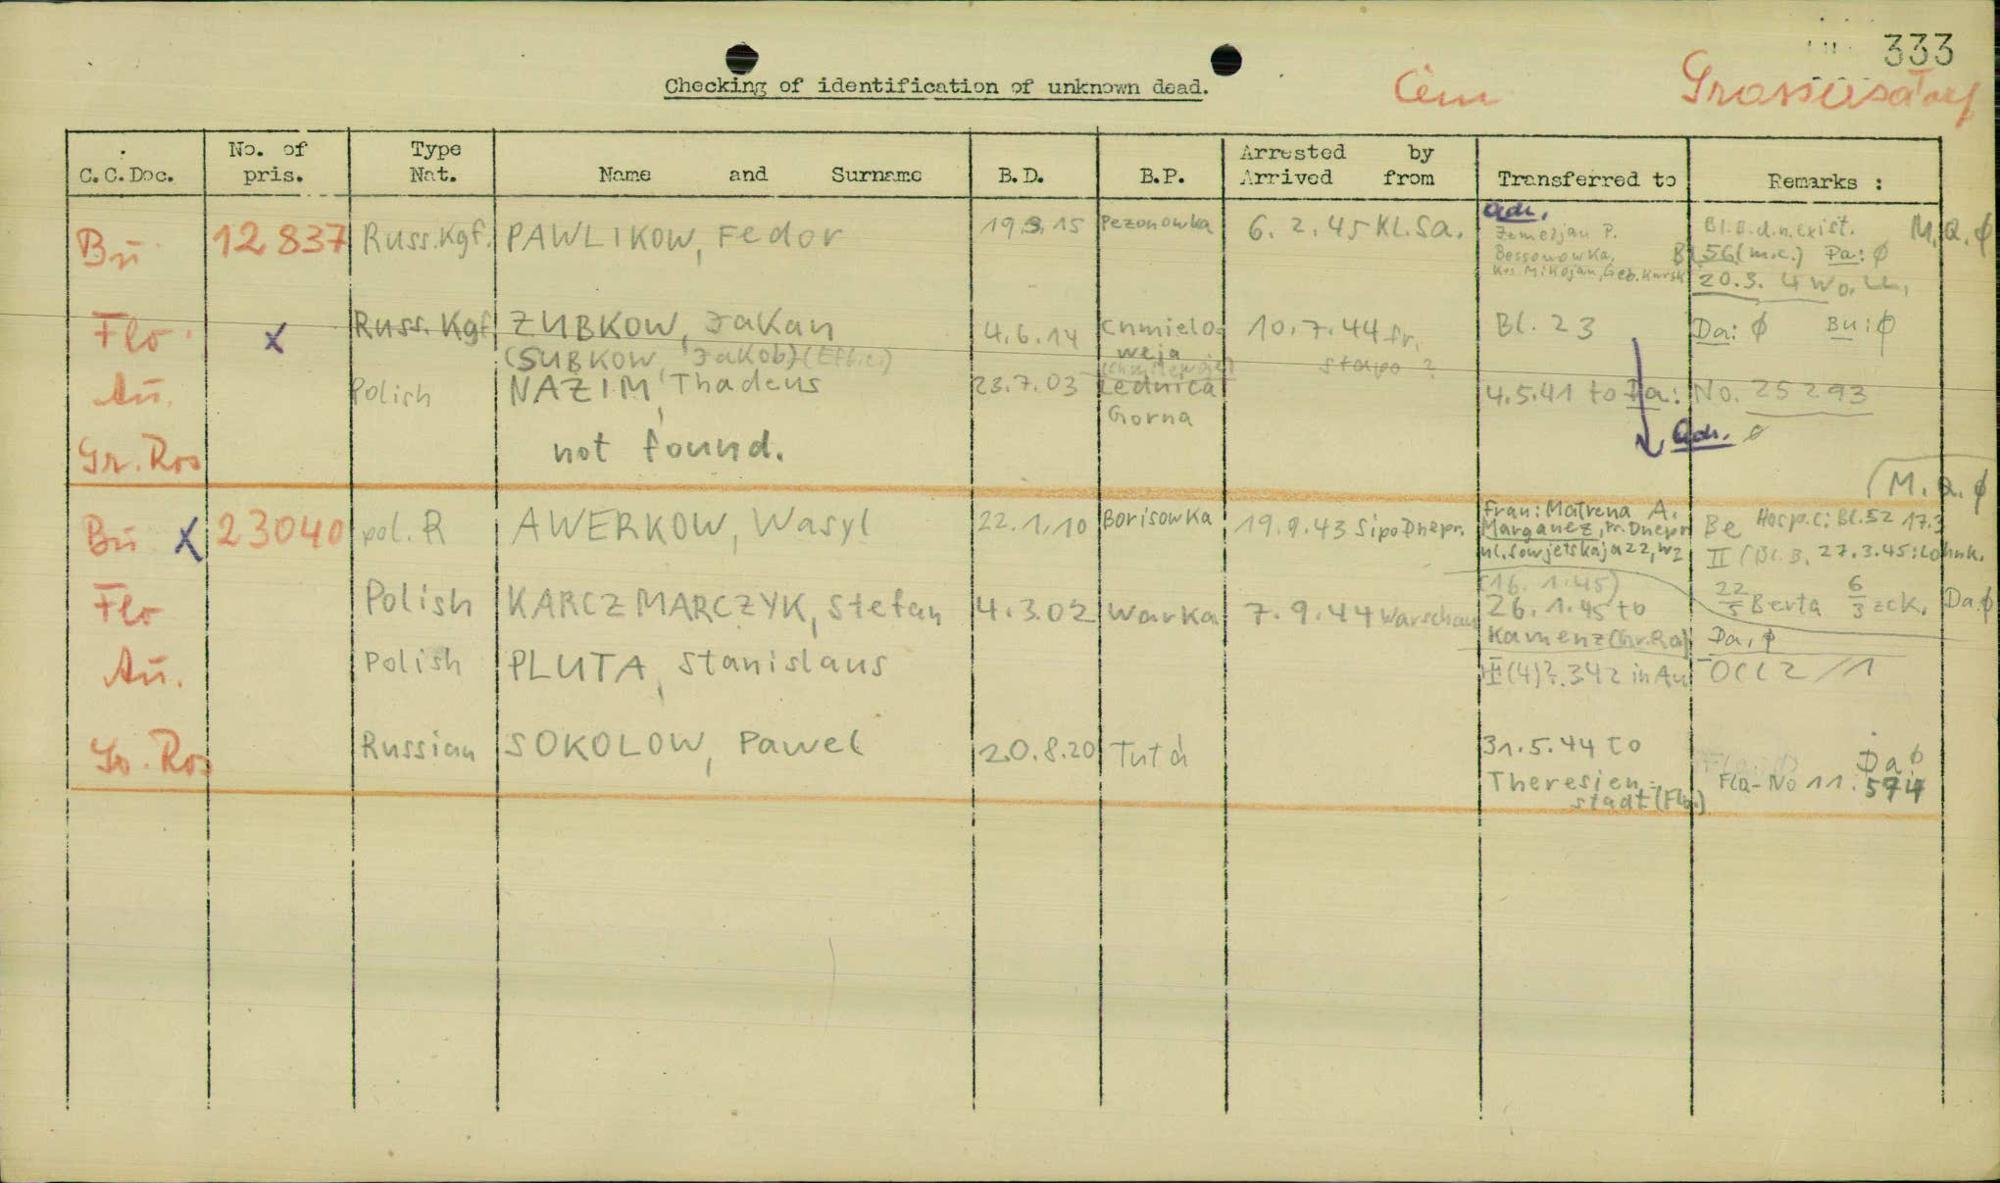 333
Checking of identification of unknown dead.
Cem
C.C.Doc.
No. of pris.
Type Nat.
Name and Surname
B.D.
B.P.
Arrested by
Arrived from
Transferred to
Remarks :
Bu 12837 Russ.Kgf. PAWLIKOW, Fedor 19.3.15 Pezonowka 6.2.45 KL.Sa. adr.
P.
Bessonowka,
Mikojan, Geb. Kursk
exist. M.Q. ø
Bl 56 (m.c.) Da: ø
20.3. 4
Flo x Russ. Kgf ZUBKOW, Jakan 4.6.14 Chmielo-
weja 10.7.44 fr.
stapo ? Bl. 23 Da: ø Bu: ø
(SUBKOW, Jakob)
Au. Polish NAZIM, Thadeus 23.7.03 Lednica
Gorna 4.5.41 to Da: No. 25293
adr. ø
Gr. Ros not found.
M.Q. ø
Bu X 23040 pol. R AWERKOW, Wasyl 22.1.10 Borisowka 19.9.43 Sipo Dnepr. Frau: Matrena A.
Marganez, Dnepr
ul. Sowjetskaja 22, W2
Be Hosp.c: Bl.52 17.3
II (Bl. 3. 27.3.45:
22/5 Berta 6/3 zck. Da ø
Flo Polish KARCZMARCZYK, Stefan 4.3.02 Warka 7.9.44 Warschau (16.1.45)
26.1.45 to
Kamenz (Gr.Ro) Da, ø
Au. Polish PLUTA, Stanislaus 342 in Au OCC 2/1
Gr. Ros Russian SOKOLOW, Pawel 20.8.20 Tuta 31.5.44 to
Theresien-
stadt (Flo.) Da ø
Flo-No 11.574